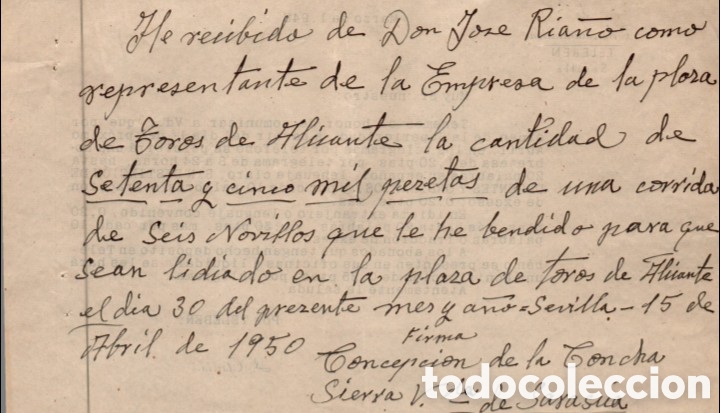 He recibido de Don Jose Riaño como
representante de la Empresa de la plaza
de Toros de Alicante la cantidad de
Setenta y cinco mil pezetas de una corrida
de Seis Novillos que le he bendido para que
sean lidiado en la plaza de toros de Alicante
el dia 30 del prezente mes y año = Sevilla - 15 de
Abril de 1950
Firma
Concepcion de la Concha
Sierra V. da de Sarasua
todocoleccion.net